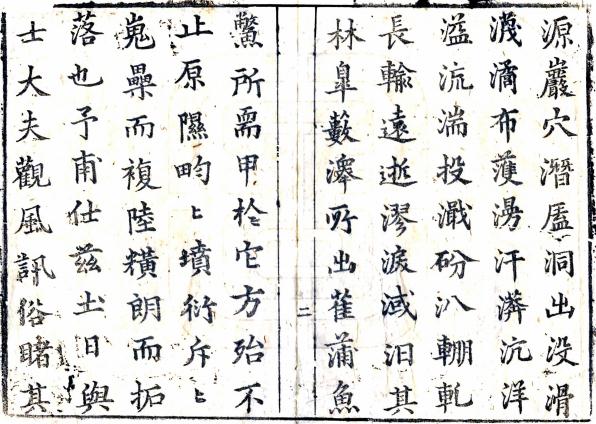 源巖穴潛㕎洞出没滑
瀎潏布濩漫汗漭沆洋
溢流湍投濈砏汃輣軋
長輸遠逝漻淚淢汨其
林皐藪澤所出萑蒲魚
二
鱉所需甲於它方殆不
止原隰畇〻墳衍斥〻
嵬壘而複陸爌朗而拓
落也予甫仕兹土日與
士大夫觀風訊俗睹其